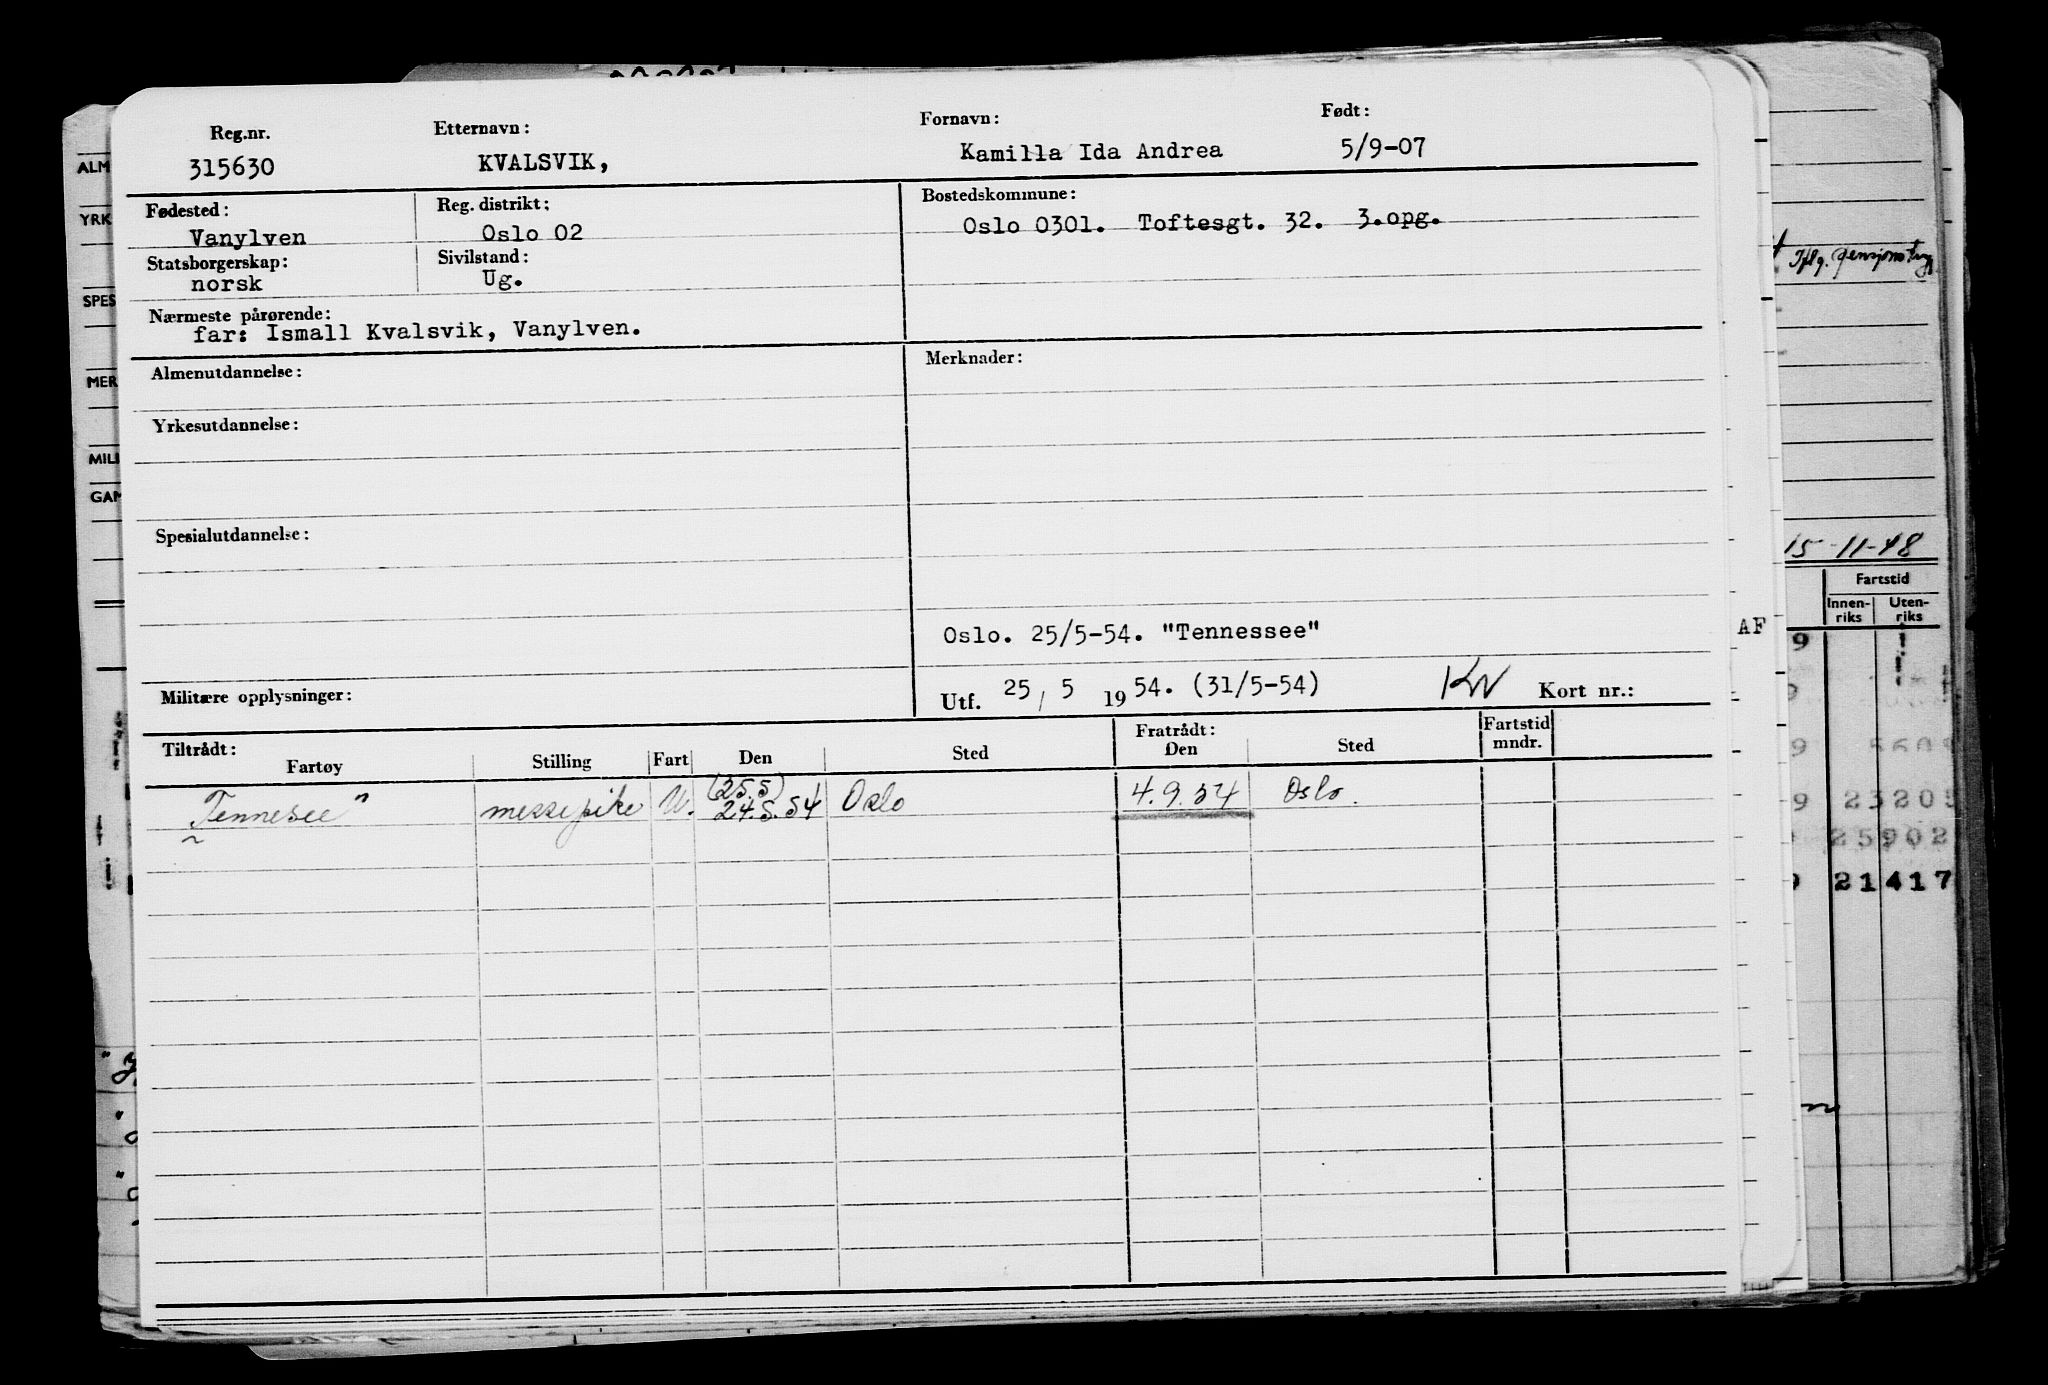 Reg.nr. Etternavn: Fornavn: Født:
315630 KVALSVIK, Kamilla Ida Andrea 5/9-07
Fødested: Reg. distrikt: Bostedskommune:
Vanylven Oslo 02 Oslo 0301. Toftesgt. 32. 3.opg.
Statsborgerskap: Sivilstand:
norsk Ug.
Nærmeste pårørende:
far: Ismall Kvalsvik, Vanylven.
Almenutdannelse: Merknader:
Yrkesutdannelse:
Spesialutdannelse:
Oslo. 25/5-54. "Tennessee"
Militære opplysninger: Utf. 25/5 1954. (31/5-54) KW Kort nr.:
Tiltrådt: Fratrådt: Fartstid
Fartøy Stilling Fart Den Sted Den Sted mndr.
(25.5)
Tennesee" messepike U. 24.5.54 Oslo 4.9.54 Oslo.
ALM
YRK
SPES
MER
MILI
GAM
Tflg. pensjonstryg
15-11-48
Fartstid
Innen-riks Uten-riks
AF
9
9 23205
25902
21417